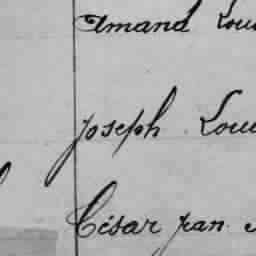 Amand Lou
Joseph Lou
César jean